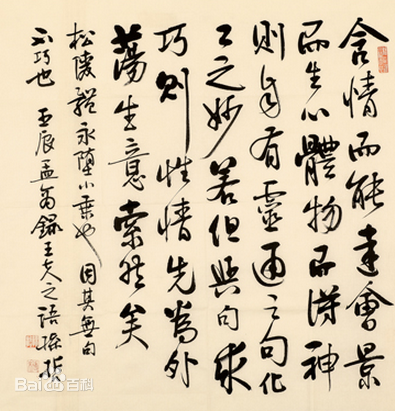 含情而能達會景
而生心體物而得神
則自有靈通之句化
工之妙若但與句求
巧則性情先為外
蕩生意索然矣
松陵體永墮小乘也因其無句
不巧也 壬辰孟 錄王夫之語
Bai百科